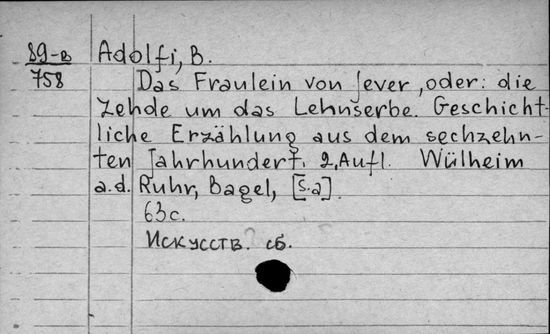 89-в Adolfi, B.
758 Das Fraulein von Jever, oder: die
Zehde um das Lehnserbe. Geschicht-
liche Erzählung aus dem sechzehn-
ten Jahrhundert. 2, Aufl. Wülheim
a.d. Ruhr, Bagel, [s.a].
63c.
Искусств. сб.